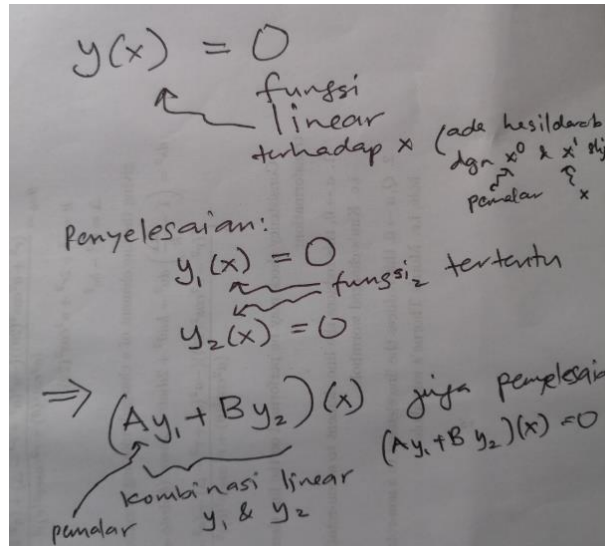 y(x) = 0
fungsi
linear
terhadap x (ada hasildarab
dgn x⁰ & x¹ shj
pemalar x
Penyelesaian:
y₁(x) = 0
fungsi₂ tertentu
y₂(x) = 0
⇒ (Ay₁ + By₂)(x) juga penyelesaia
(Ay₁+By₂)(x) = 0
kombinasi linear
y₁ & y₂
pemalar